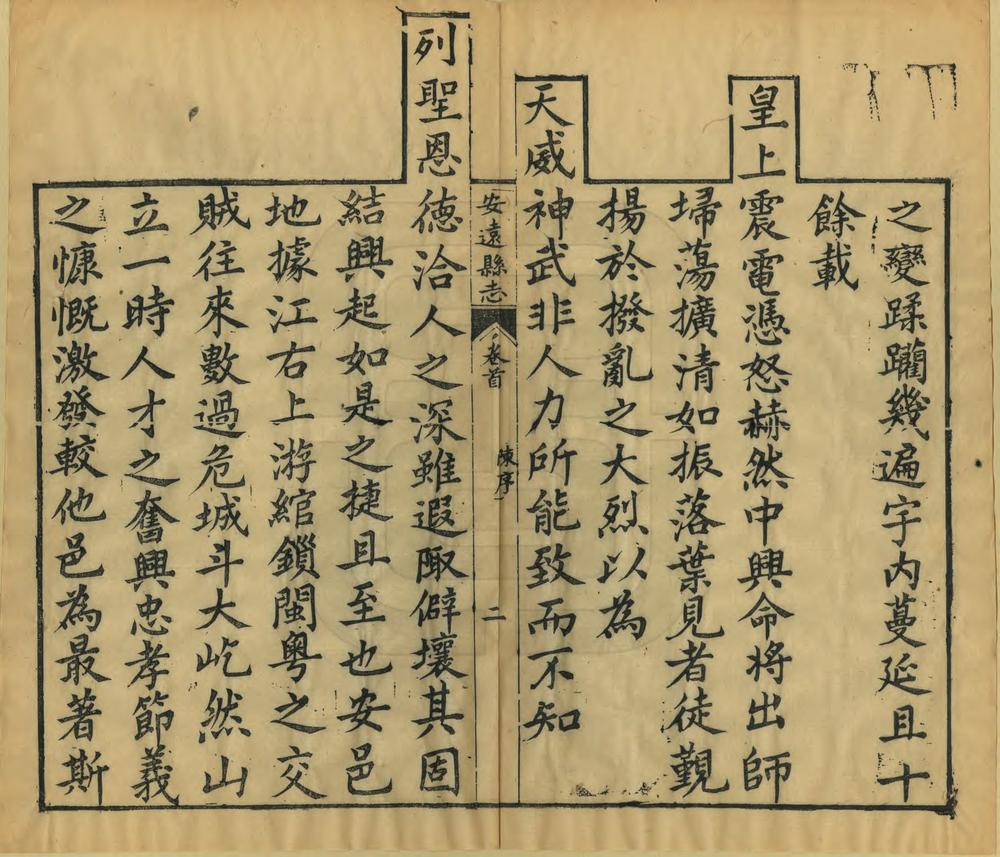 之變蹂躪幾遍宇内蔓延且十
餘載
皇上震電憑怒赫然中興命将出師
埽蕩擴清如振落葉見者徒覲
揚於撥亂之大烈以為
天威神武非人力所能致而不知
安遠縣志 卷首 陳序 二
列聖恩德洽人之深雖遐陬僻壤其固
結興起如是之捷且至也安邑
地據江右上游綰鎖閩粤之交
賊往來數過危城斗大屹然山
立一時人才之奮興忠孝節義
之慷慨激發較他邑為最著斯